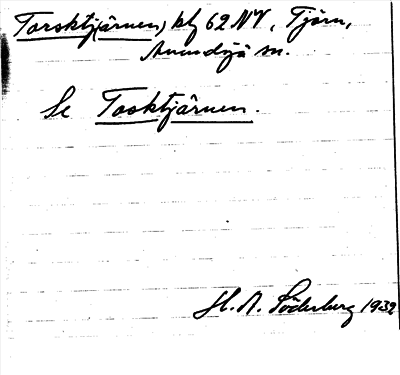 Torsktjärnen, kbl 62 NV, Tjärn,
Anundsjö sn.
Se Tosktjärnen.
H. A. Söderberg 1932